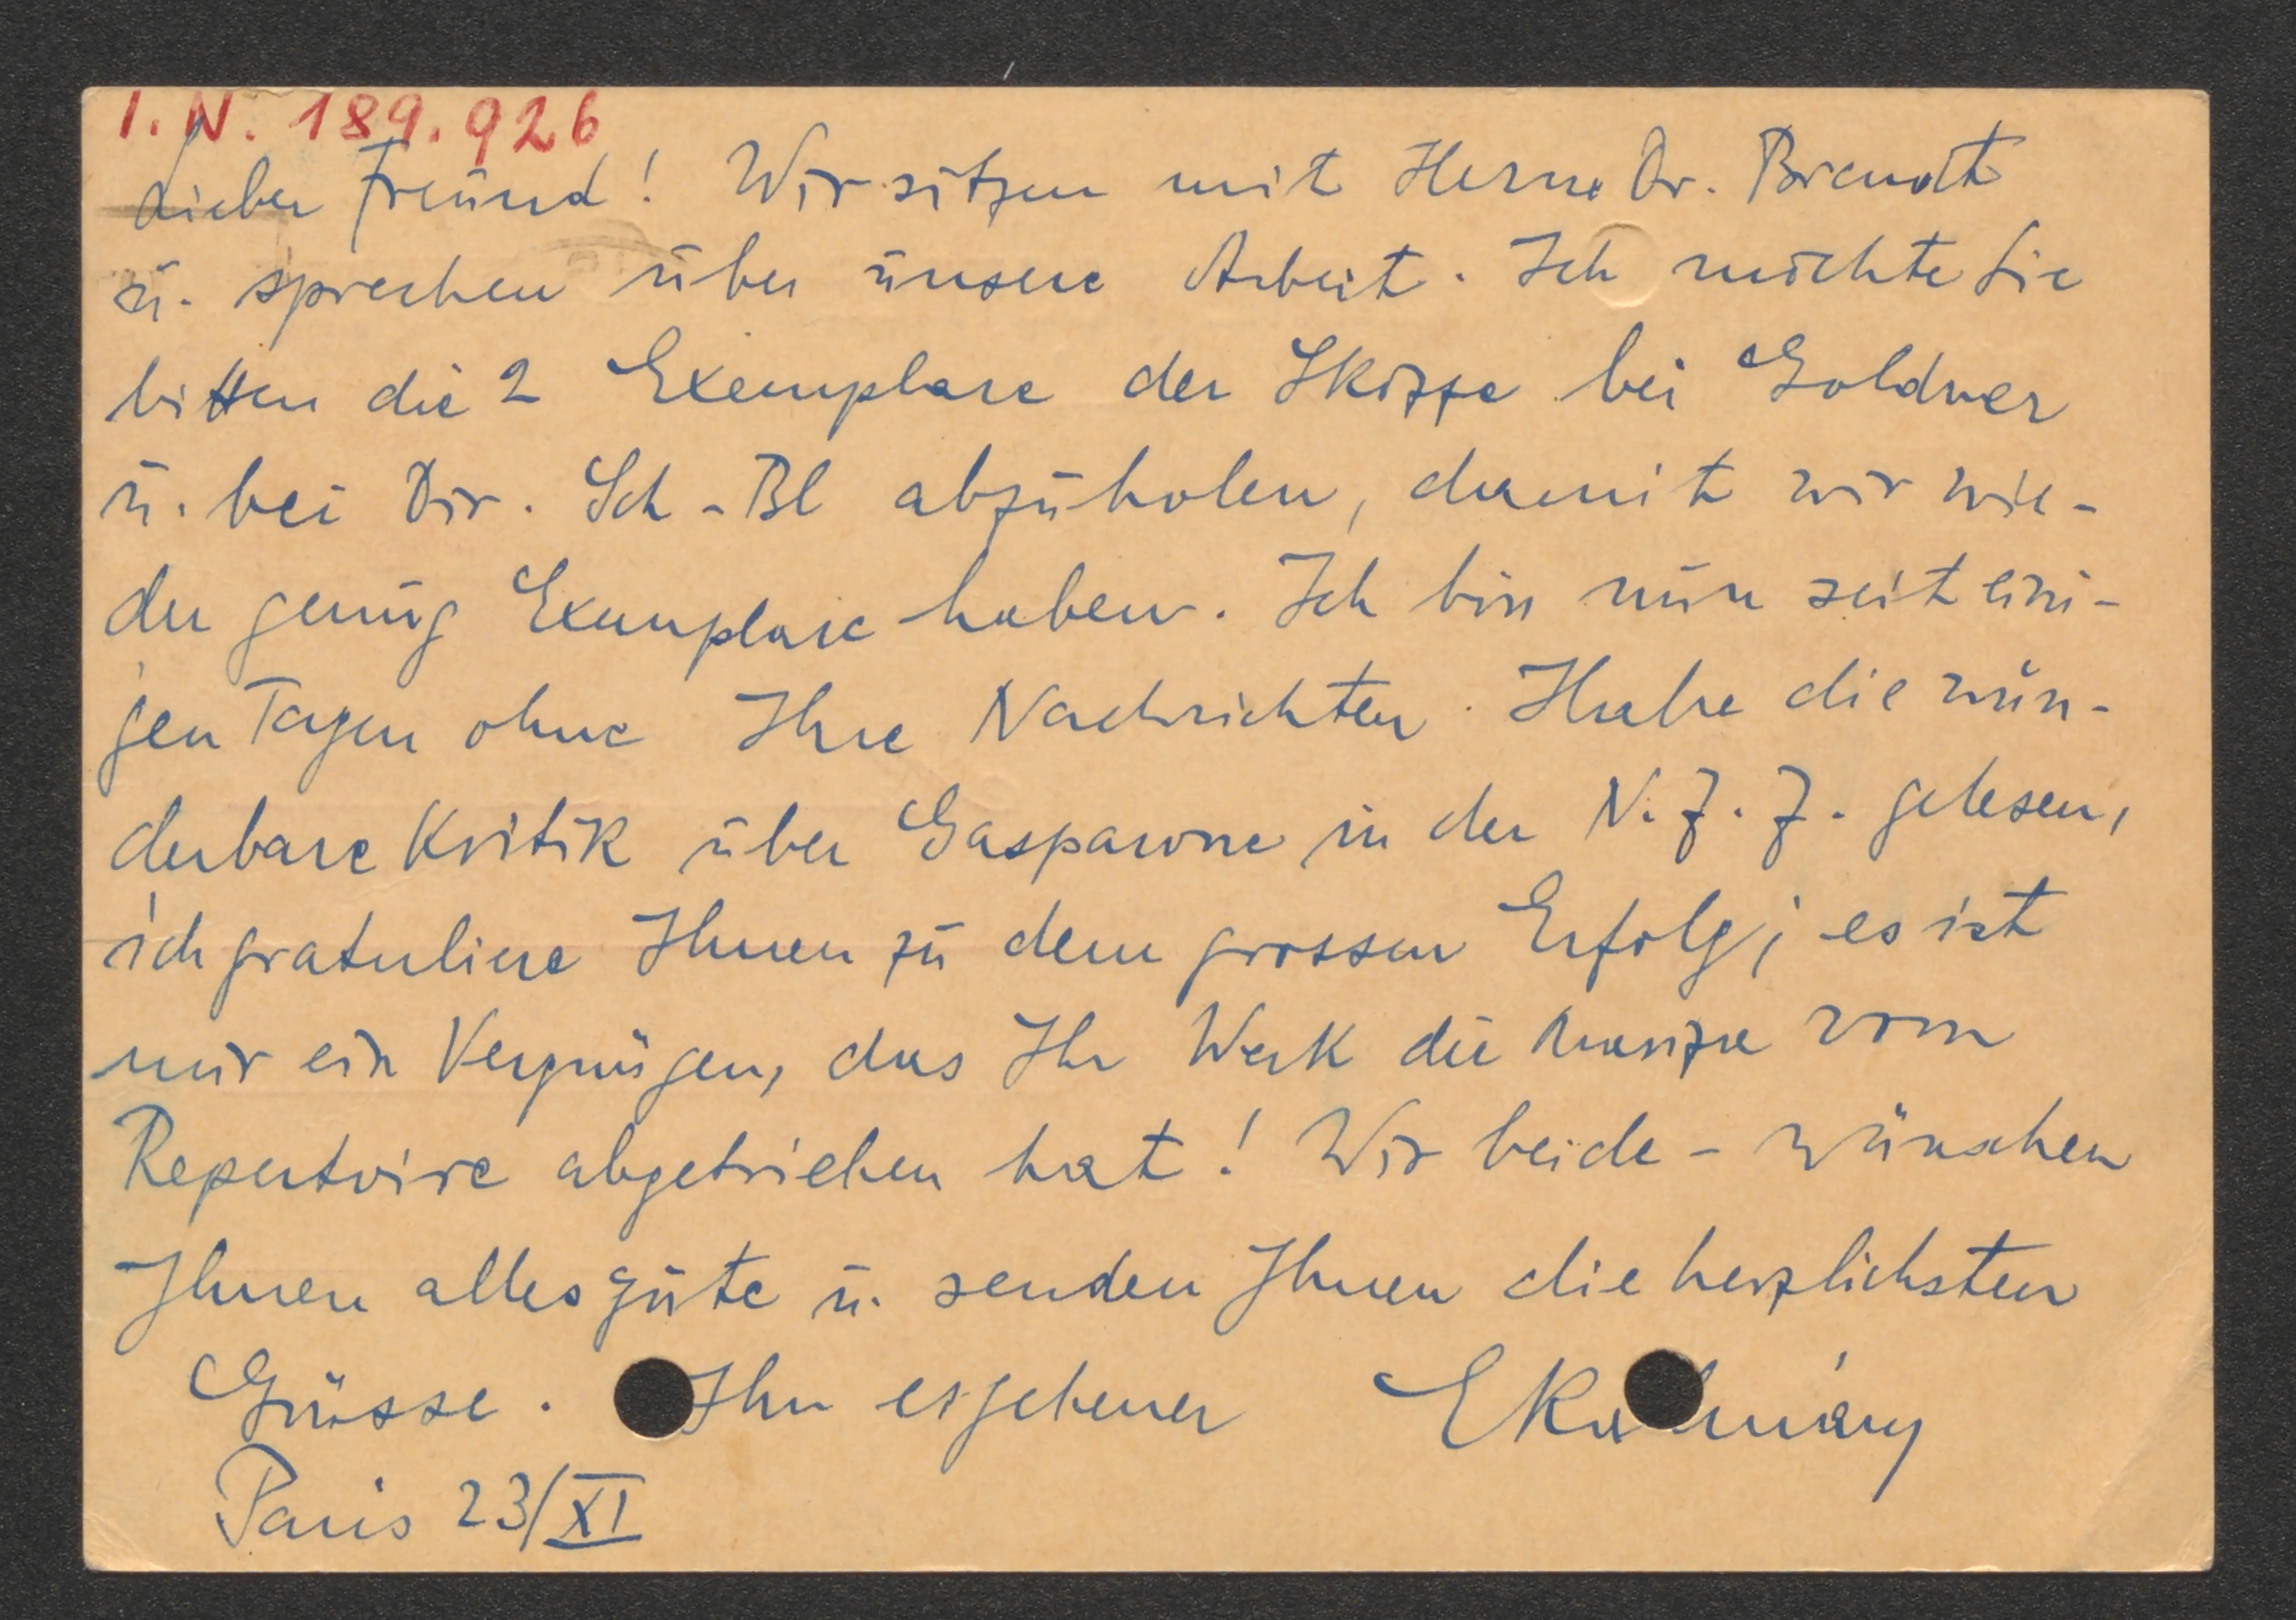 I. N. 189.926
Lieber Freund! Wir sitzen mit Herrn Dr. Brandt
u. sprechen über unsere Arbeit. Ich möchte Sie
bitten die 2 Exemplare der Skizze bei Goldner
u. bei Dir. Sch-Bl abzuholen, damit wir wie-
der genug Exemplare haben. Ich bin nun seit eini-
gen Tagen ohne Ihre Nachrichten. Habe die wun-
derbare Kritik über Gasparone in der N. Z. Z. gelesen,
ich gratuliere Ihnen zu dem grossen Erfolg; es ist
mir ein Vergnügen, das Ihr Werk die vom
Repertoire abgetrieben hat! Wir beide - wünschen
Ihnen alles gute u. senden Ihnen die herzlichsten
Grüsse. Ihr ergebener EKalmány
Paris 23/XI